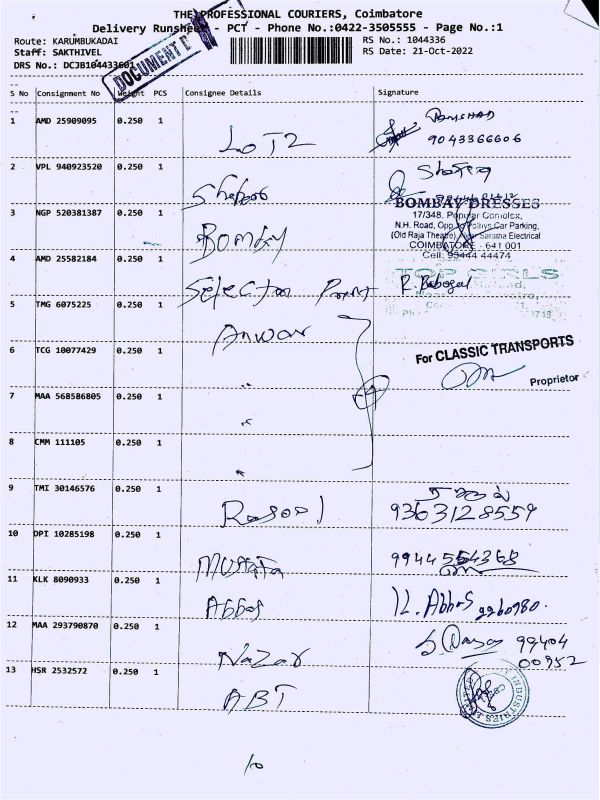 THE PROFESSIONAL COURIERS, Coimbatore
Delivery Runsheet - PCT - Phone No.:0422-3505555 - Page No.:1
Route: KARUMBUKADAI
RS No.: 1044336
Staff: SAKTHIVEL
RS Date: 21-Oct-2022
DRS No.: DCJB104433601
DOCUMENT
S No Consignment No Weight PCS Consignee Details Signature
1 AMD 25909095 0.250 1
LOT2
9043366606
2 VPL 940923520 0.250 1
BOMBAY DRESSES
17/348, Popular Complex,
N.H. Road, Opp. Pothys Car Parking,
3 NGP 520381387 0.250 1
(Old Raja Theatre) Near Sarama Electrical
Bombay
COIMBATORE - 641 001
Cell: 99444 44474
4 AMD 25582184 0.250 1
TOP GIRLS
Selection Point
5 TMG 6075225 0.250 1
Anwar
6 TCG 10077429 0.250 1
For CLASSIC TRANSPORTS
"
Proprietor
7 MAA 568586805 0.250 1
"
8 CMM 111105 0.250 1
"
9 TMI 30146576 0.250 1
Rasool
9363128559
10 DPI 10285198 0.250 1
Mustafa
11 KLK 8090933 0.250 1
Abbas
K. Abbas
12 MAA 293790870 0.250 1
Nazar
99404
00952
13 HSR 2532572 0.250 1
ABT
INDUSTRIES
10